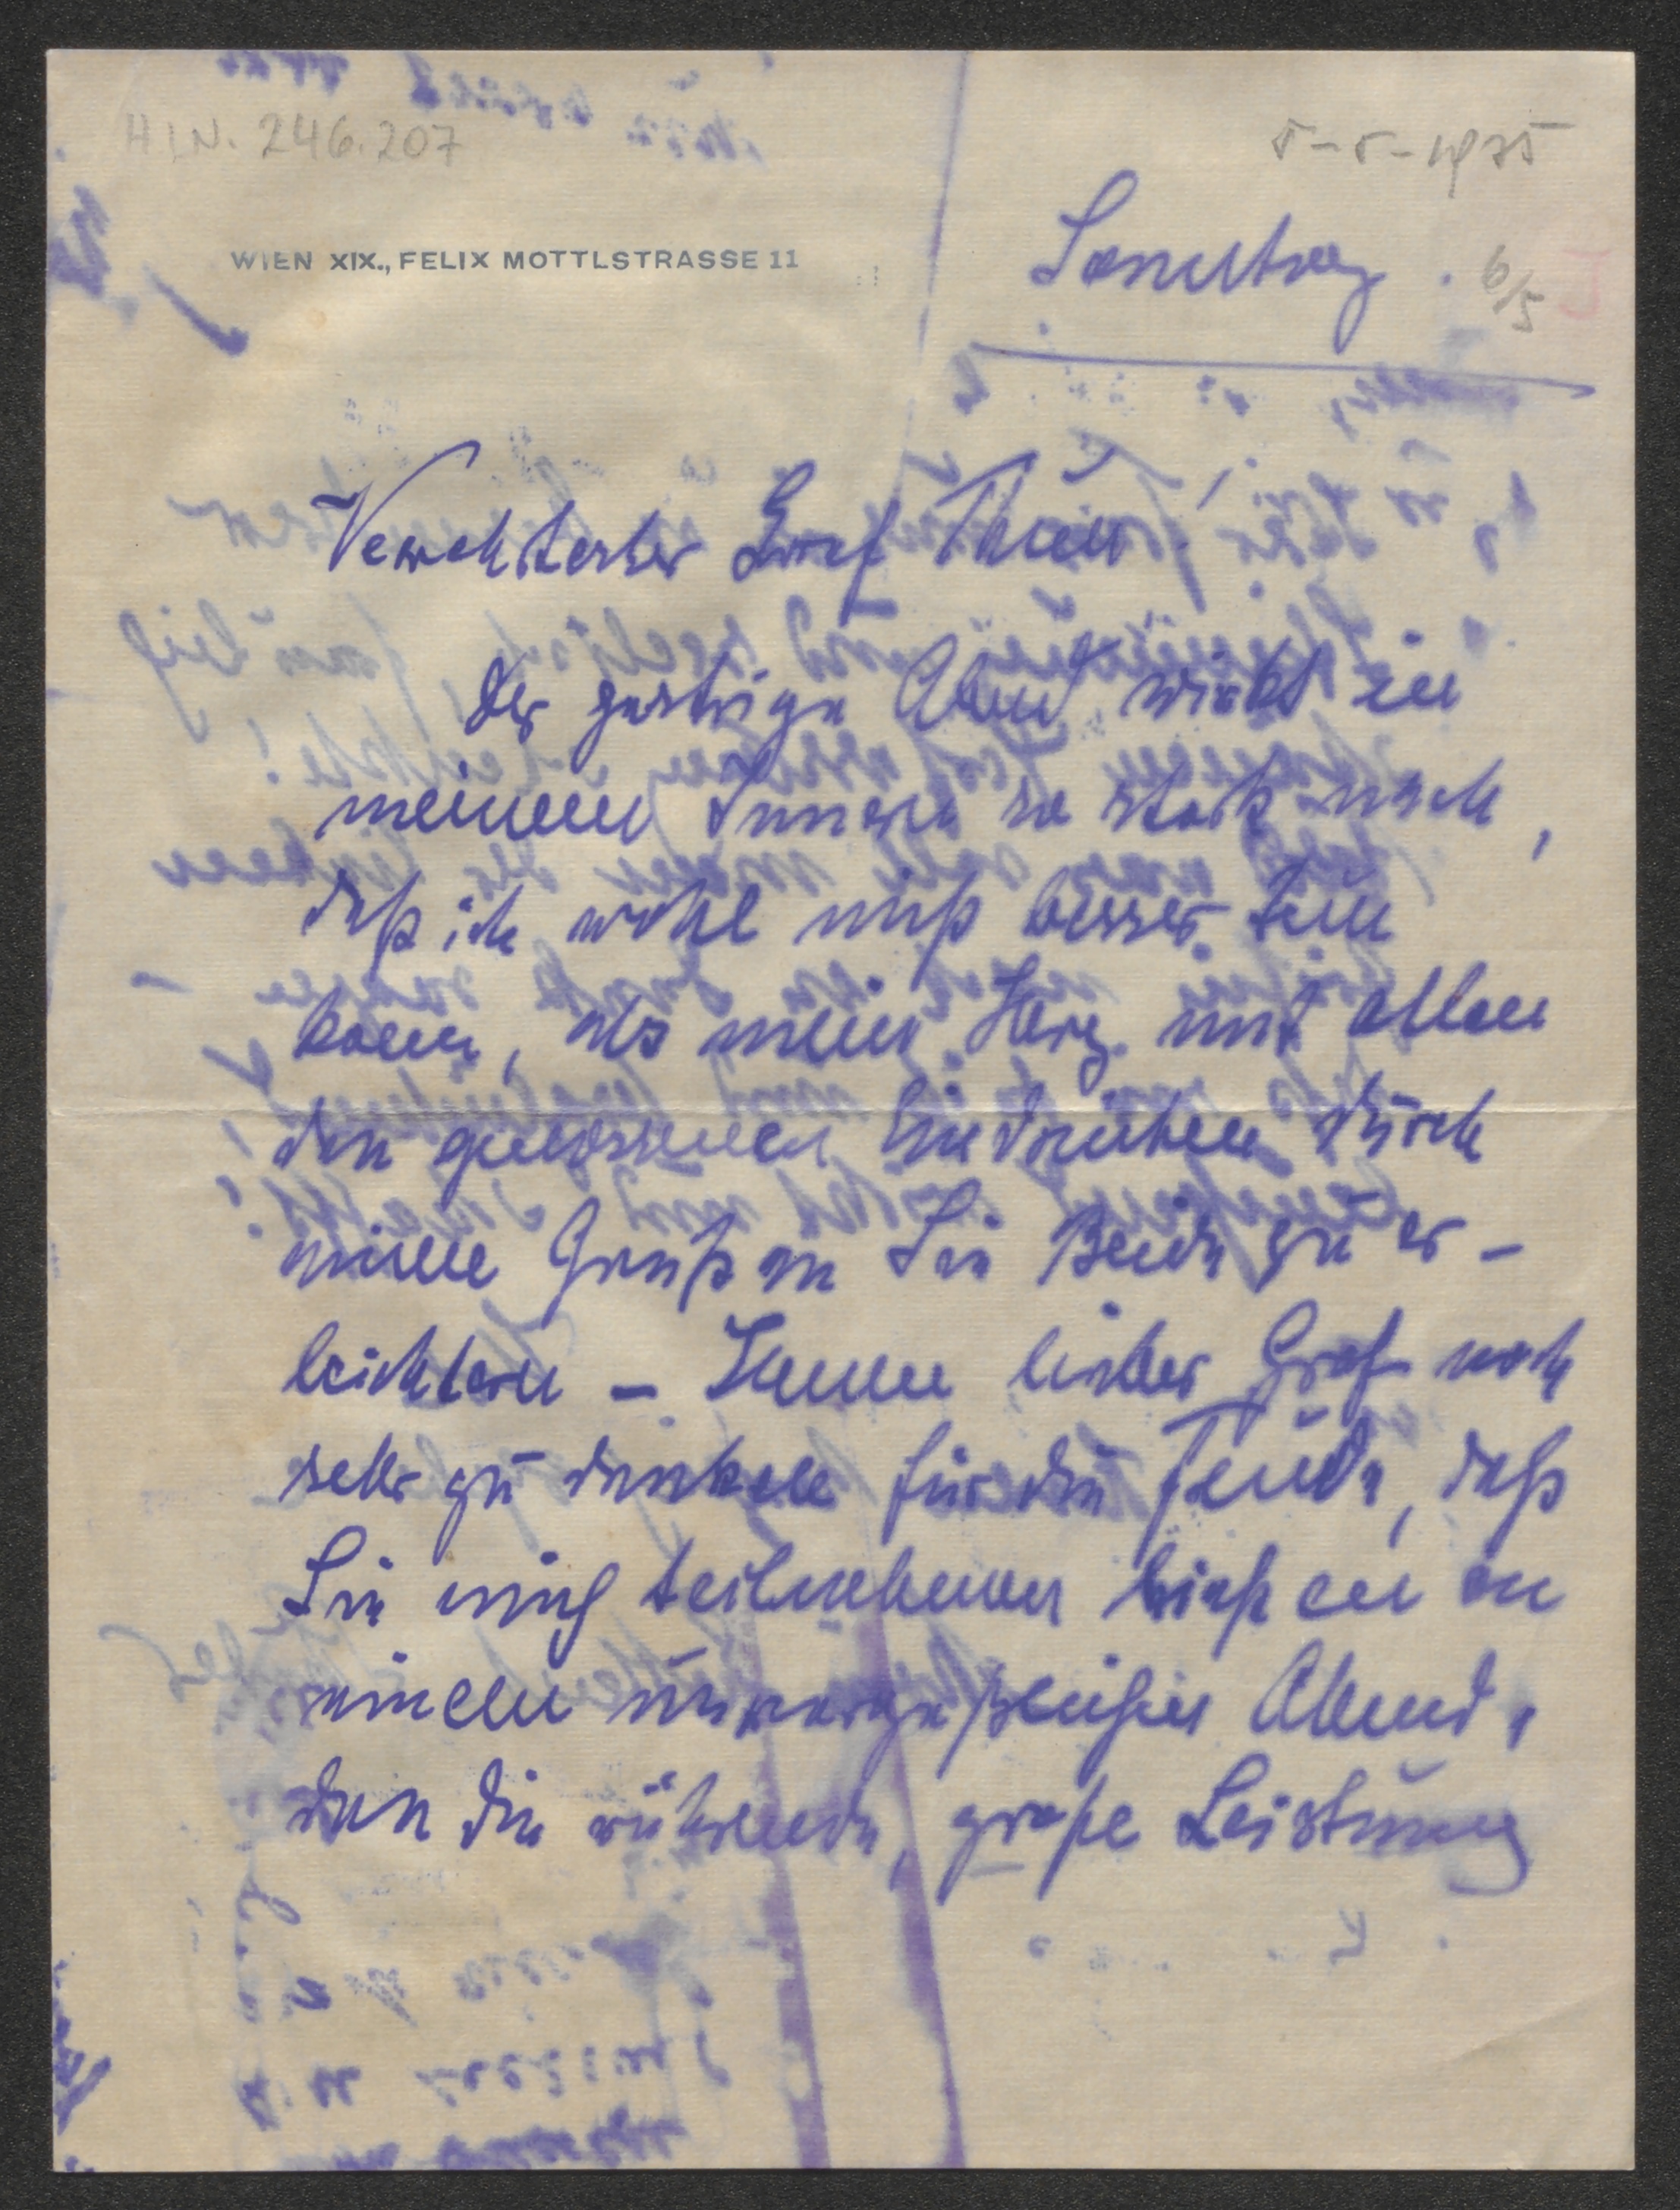 H.I.N. 246.207
5-5-1935
WIEN XIX., FELIX MOTTLSTRASSE 11
Samstag. 6/5
Verehrtester Graf Thun!
Der gestrige Abend wirkt in
meinem Innern so stark nach,
daß ich wohl nichts besser tun
kann, als mein Herz mit allen
den genossenen Eindrücken durch
einen Gruß an Sie Beide zu er-
leichtern – Ihnen lieber Graf noch
sehr zu danken für die Freude, daß
Sie mich teilnehmen ließen an
einem unvergeßlichen Abend,
den die rührende, große Leistung